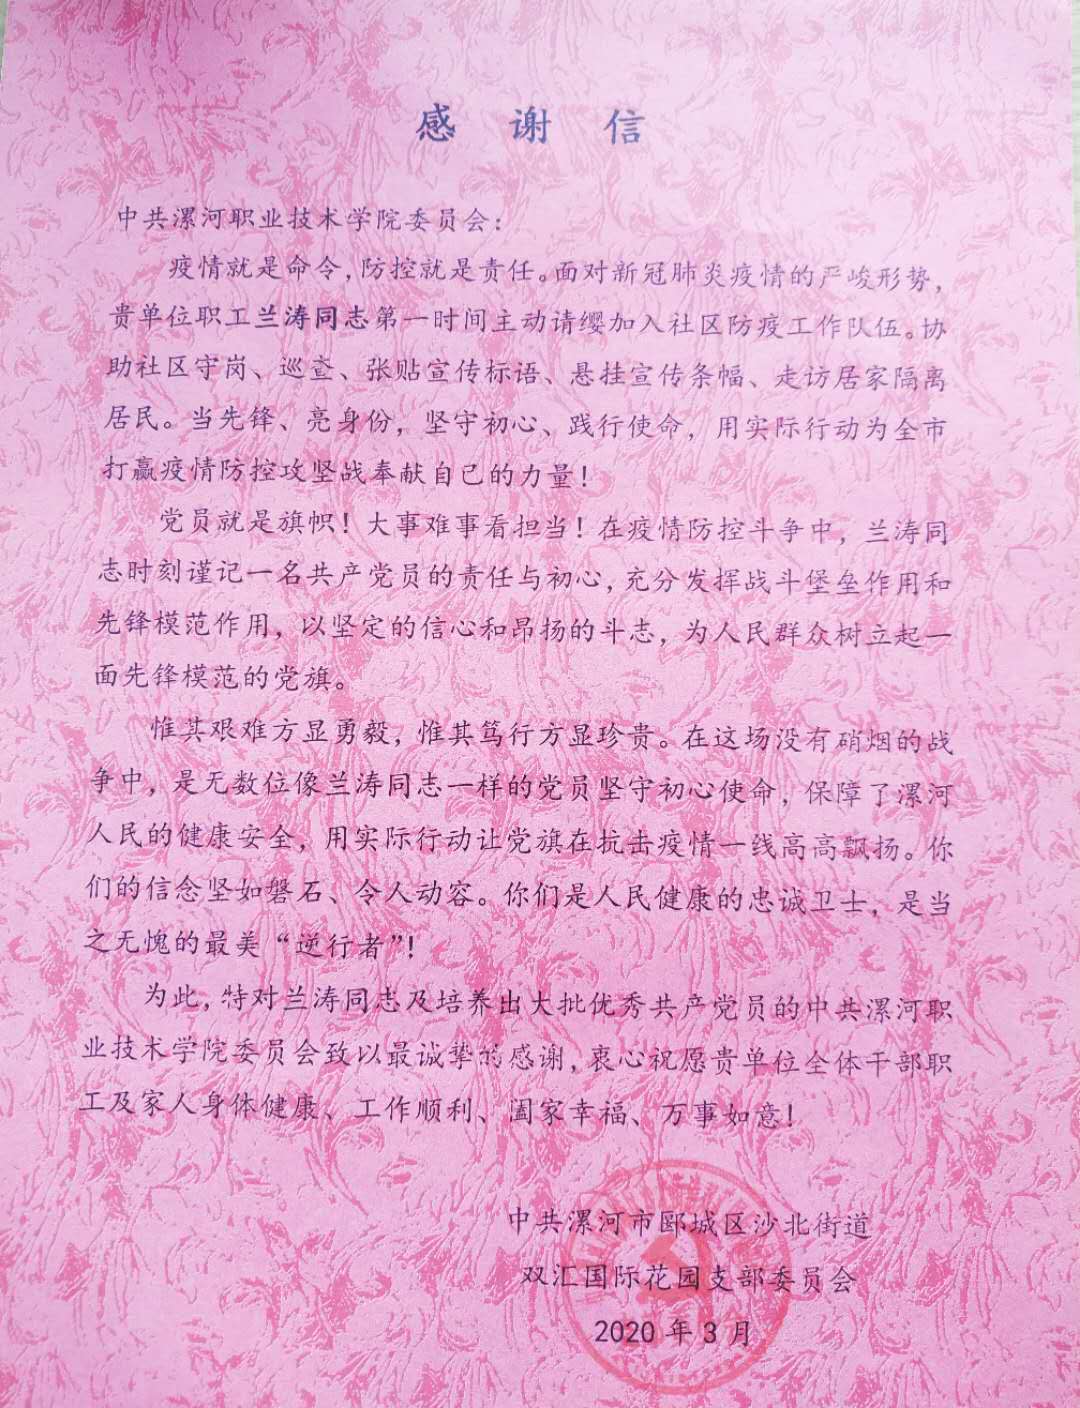 感谢信
中共漯河职业技术学院委员会：
疫情就是命令，防控就是责任。面对新冠肺炎疫情的严峻形势，
贵单位职工兰涛同志第一时间主动请缨加入社区防疫工作队伍。协
助社区守岗、巡查、张贴宣传标语、悬挂宣传条幅、走访居家隔离
居民。当先锋、亮身份，坚守初心、践行使命，用实际行动为全市
打赢疫情防控攻坚战奉献自己的力量！
党员就是旗帜！大事难事看担当！在疫情防控斗争中，兰涛同
志时刻谨记一名共产党员的责任与初心，充分发挥战斗堡垒作用和
先锋模范作用，以坚定的信心和昂扬的斗志，为人民群众树立起一
面先锋模范的党旗。
惟其艰难方显勇毅，惟其笃行方显珍贵。在这场没有硝烟的战
争中，是无数位像兰涛同志一样的党员坚守初心使命，保障了漯河
人民的健康安全，用实际行动让党旗在抗击疫情一线高高飘扬。你
们的信念坚如磐石、令人动容。你们是人民健康的忠诚卫士，是当
之无愧的最美“逆行者”！
为此，特对兰涛同志及培养出大批优秀共产党员的中共漯河职
业技术学院委员会致以最诚挚的感谢，衷心祝愿贵单位全体干部职
工及家人身体健康、工作顺利、阖家幸福、万事如意！
中共漯河市郾城区沙北街道
双汇国际花园支部委员会
2020年3月